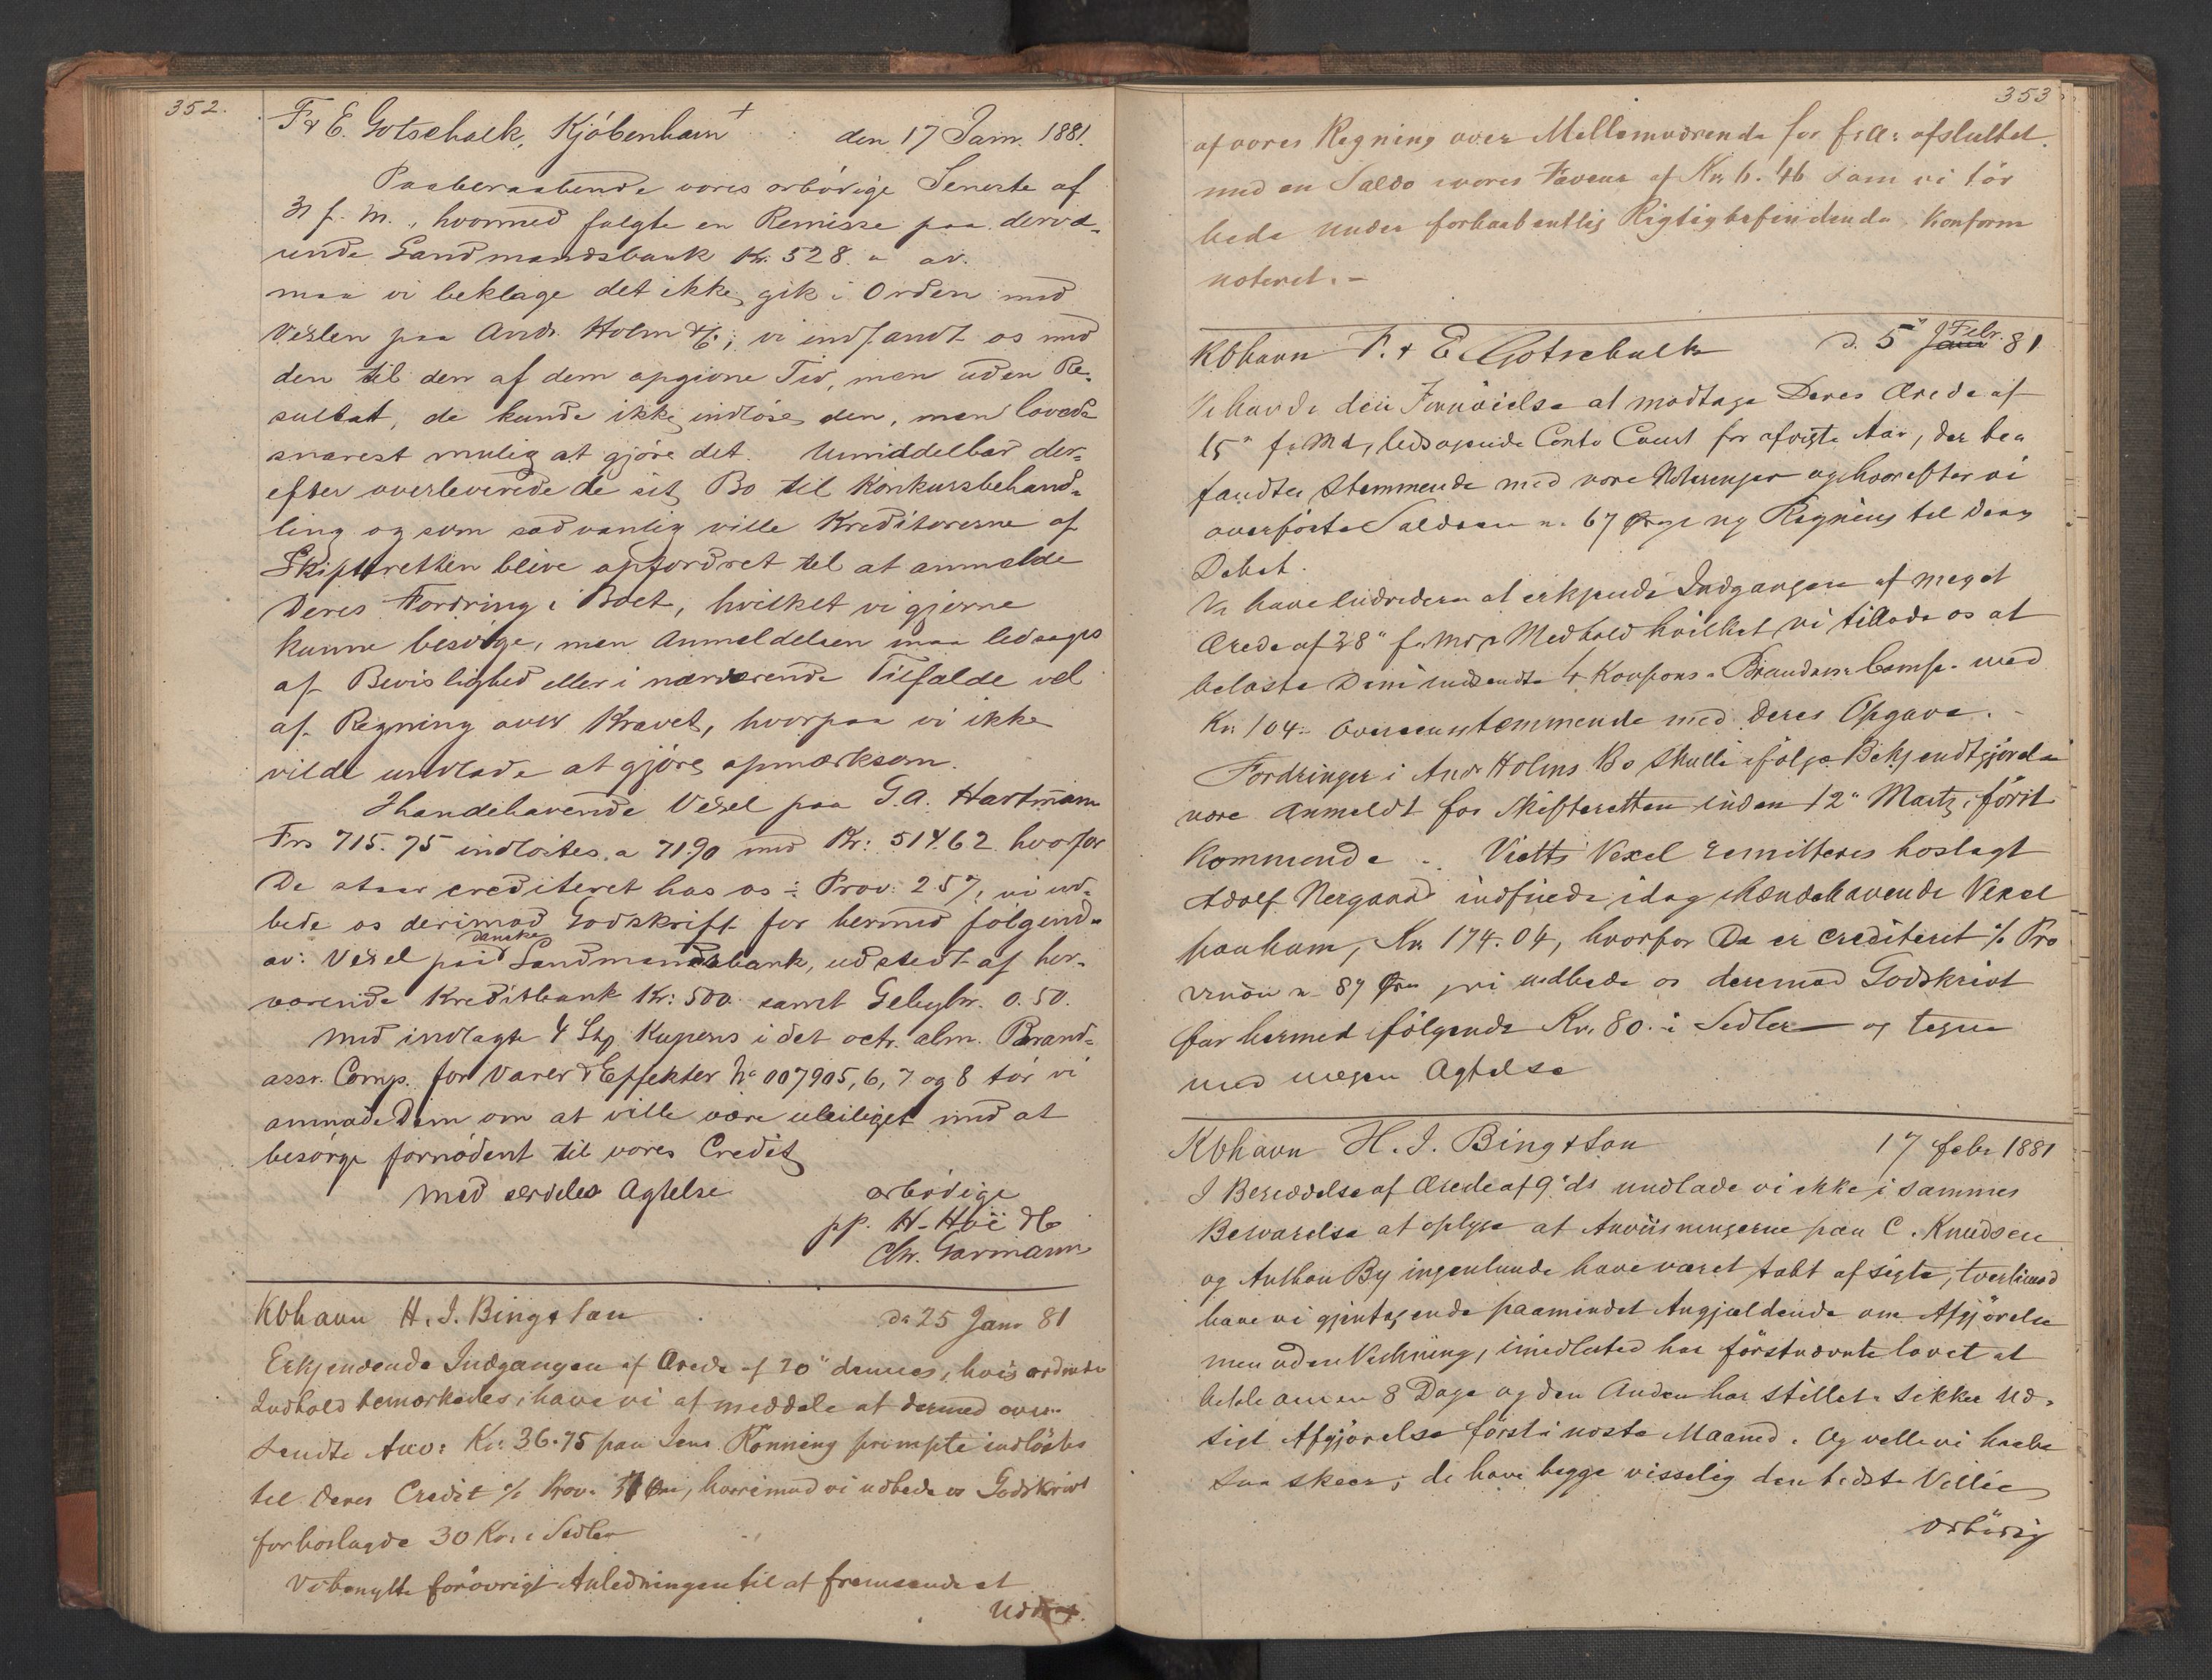 352.
F & E. Gotschalk, Kjöbenhavn den 17 Janr. 1881.
Paaberaabende vores ærbödige Seneste af
31 f. M., hvormed fulgte en Remisse paa dervæ-
rende Landmandsbank Kr. 528. " av.
maa vi beklage det ikke gik i Orden med
Vexlen paa Andr. Holm & C; vi indfandt os med
den til den af dem opgivne Tid, men uden Re-
sultat, de kunde ikke indlöse den, men lovede
snarest mulig at gjöre det. Umiddelbar der-
efter overleverede de sit Bo til Konkursbehand-
ling og som sædvanlig ville Kreditorerne af
Skifteretten blive opfordret til at anmelde
Deres Fordring i Boet, hvilket vi gjerne
kunne besörge, men Anmeldelsen maa ledsages
af Bevislighed eller i nærværende Tilfælde vel
af Regning over Kravet, hvorpaa vi ikke
vilde undlade at gjöre opmærksom.
Ihændehavende Vexel paa G. A. Hartmann
Frs 715.75 indlöstes a 71.90 med Kr: 514.62 hvorfor
De staar crediteret hos os ÷ Prov: 257, vi ud-
bede os derimod Godskrift for hermed fölgende
av: Vexel paa danske Landmandsbank, udstedt af her-
værende Kreditbank Kr: 500. samt Gebyhr. 0.50.
Med indlagte 4 Stp Kupons i det octr. alm. Brand-
assr. Comp. for Varer & Effekter No 007905, 6, 7 og 8 tör vi
anmode Dem om at ville være uleiliget med at
besörge fornödent til vores Credit
Med særdeles Agtelse ærbödige
pp. H. Höe & Co
Chr. Garmann
Kbhavn H. J. Bing & Sön d. 25 Janr 81
Erkjendende Indgangen af Ærede af 20" dennes, hvis ordnede
Indhold bemærkedes, have vi at meddele at dermed over-
sendte Anv: Kr: 36.75 paa Jens Rönning prompte indlöstes
til Deres Credit % Prov. Öre, hvorimod vi udbede os Godskrivt
for hoslagde 30 Kr. i Sedler
Vi benytte forövrigt Anledningen til at fremsende et
Uddrag.
353
af vores Regning over Mellemværende for f. A: afsluttet
med en Saldo i vores Faveur af Kr. 6.46 som vi tör
bede under forhaabentlig Rigtigbefindende Konform
noteret. —
Kbhavn F. & E Gotschalk D. 5" Janr Febr. 81
Vi havde den Fornöielse at modtage Deres Ærede af
15" f. Md, ledsagende Conto Court for afvigte Aar, der be-
fandtes stemmende med vore Noteringer og hvorefter vi
overförte Saldoen n. 67 Öre i ny Regning til Deres
Debet.
Vi have endvidere at erkjende Indgangen af meget
Ærede af 28" f. Md, i Medhold hvilket vi tillade os at
belaste Dem indsendte 4 Koupons - Brandass. Comp. med
Kr. 104 - overensstemmende med Deres Opgave. -
Fordringer i Andr Holms Bo skulle ifölge Bekjendtgjörelse
være Anmeldt for Skifteretten inden 12" Marts förstk
kommende. Vietts Vexel remitteres hoslagt
Adolf Nergaard indfriede idag ihændehavende Vexel
paa ham, Kr. 174.04, hvorfor De er crediteret % Pro
vision n. 87 Öre, vi udbede os derimod Godskrivt
for hermed fölgende Kr. 80. i Sedler og tegne
med megen Agtelse
Kbhavn H. J. Bing & Sön 17 Febr 1881
I Besiddelse af Ærede af 9" ds undlade vi ikke i sammes
Besvarelse at oplyse at Anviisningerne paa C. Knudsen
og Anthon By ingenlunde have været tabt af sigte, tvertimod
have vi gjentagende paamindet Angjældende om Afgjörelse
men uden Virkning, imidlertid har förstnævnte lovet at
betale om en 8 Dage og den Anden har stillet i sikker Ud-
sigt Afgjörelse först i næste Maaned. Og ville vi haabe
saa skeer, de have begge visselig den bedste Villie
ærbödig